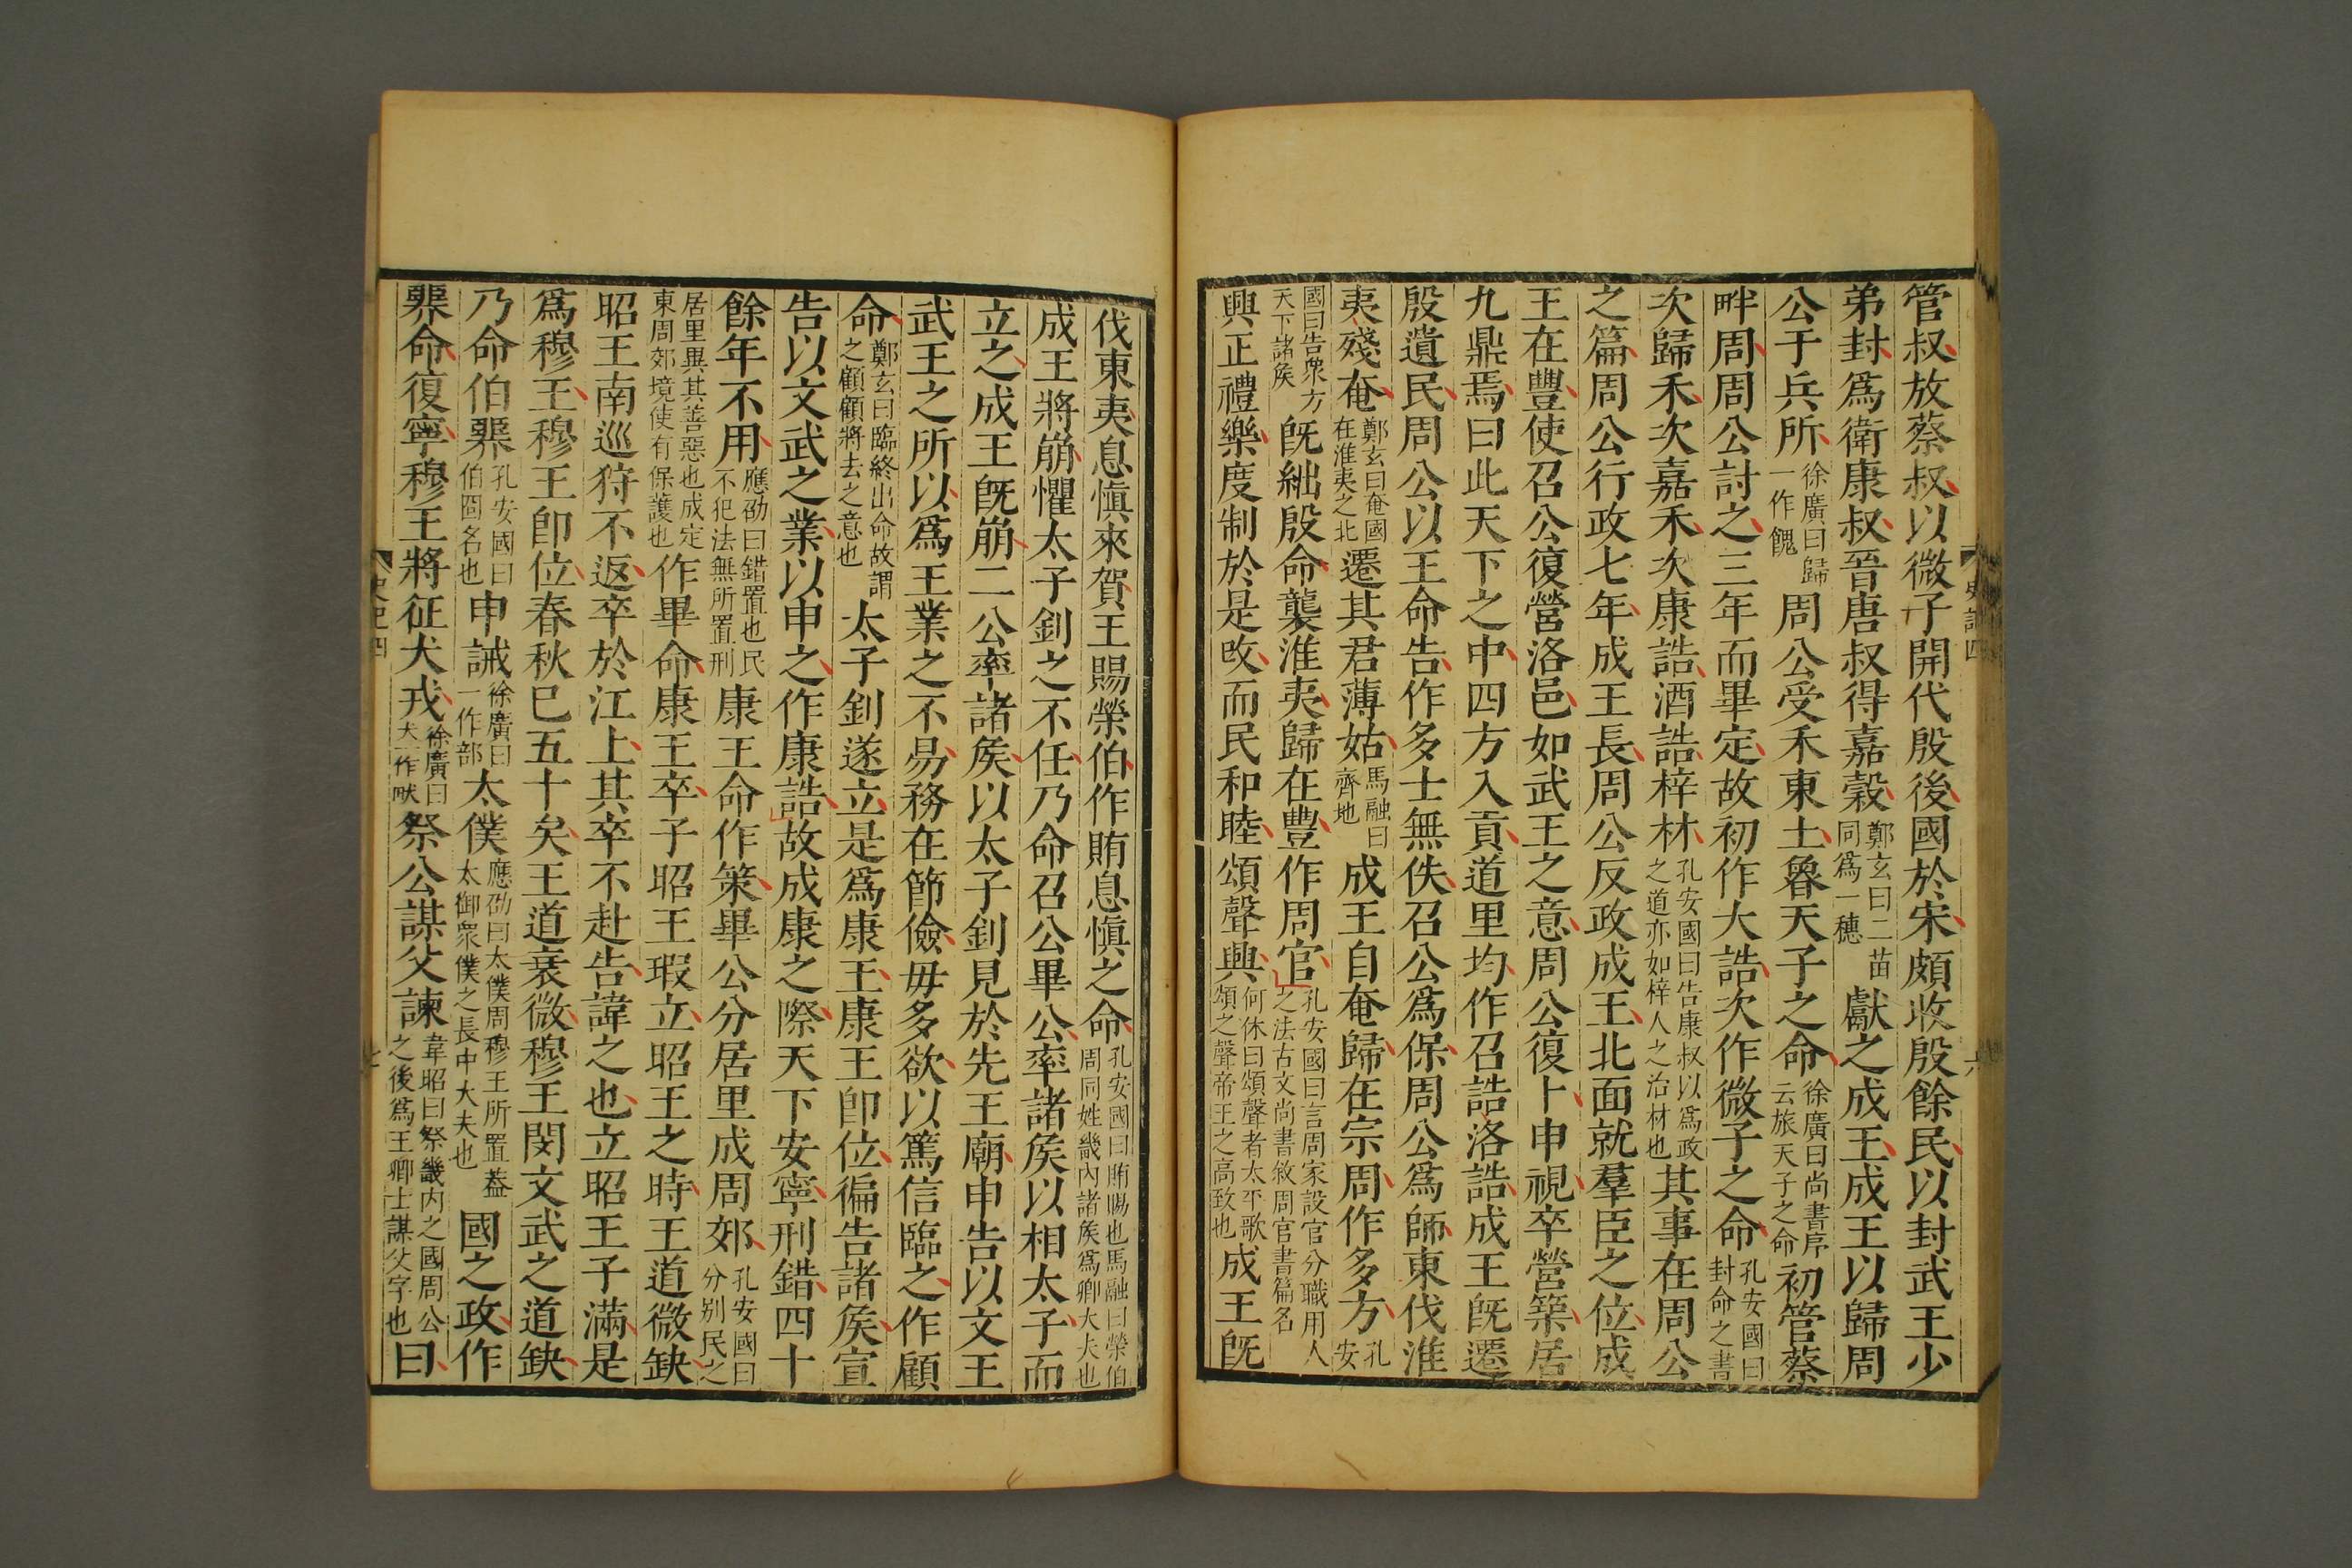 管叔放蔡叔以微子開代殷後國於宋頗收殷餘民以封武王少
弟封爲衛康叔晉唐叔得嘉穀鄭玄曰二苗同爲一穗獻之成王成王以歸周
公于兵所徐廣曰歸一作餽周公受禾東土魯天子之命徐廣曰尚書序云旅天子之命初管蔡
畔周周公討之三年而畢定故初作大誥次作微子之命孔安國曰封命之書
次歸禾次嘉禾次康誥酒誥梓材孔安國曰告康叔以爲政之道亦如梓人之治材也其事在周公
之篇周公行政七年成王長周公反政成王北面就羣臣之位成
王在豐使召公復營洛邑如武王之意周公復卜申視卒營築居
九鼎焉曰此天下之中四方入貢道里均作召誥洛誥成王旣遷
殷遺民周公以王命告作多士無佚召公爲保周公爲師東伐淮
夷殘奄鄭玄曰奄國在淮夷之北遷其君薄姑馬融曰齊地成王自奄歸在宗周作多方孔安
國曰告衆方天下諸矦旣絀殷命襲淮夷歸在豐作周官孔安國曰言周家設官分職用人之法古文尚書敘周官書篇名
興正禮樂度制於是改而民和睦頌聲興何休曰頌聲者太平歌頌之聲帝王之高致也成王旣
史記四
六
伐東夷息愼來賀王賜榮伯作賄息愼之命孔安國曰賄賜也馬融曰榮伯周同姓畿內諸矦爲卿大夫也
成王將崩懼太子釗之不任乃命召公畢公率諸矦以相太子而
立之成王旣崩二公率諸矦以太子釗見於先王廟申告以文王
武王之所以爲王業之不易務在節儉毋多欲以篤信臨之作顧
命鄭玄曰臨終出命故謂之顧顧將去之意也太子釗遂立是爲康王康王卽位徧告諸矦宣
告以文武之業以申之作康誥故成康之際天下安寧刑錯四十
餘年不用應劭曰錯置也民不犯法無所置刑康王命作策畢公分居里成周郊孔安國曰分別民之
居里異其善惡也成定東周郊境使有保護也作畢命康王卒子昭王瑕立昭王之時王道微缺
昭王南巡狩不返卒於江上其卒不赴告諱之也立昭王子滿是
爲穆王穆王卽位春秋已五十矣王道衰微穆王閔文武之道缺
乃命伯臩孔安國曰伯冏名也申誡徐廣曰一作部太僕應劭曰太僕周穆王所置蓋太御衆僕之長中大夫也國之政作
臩命復寧穆王將征犬戎徐廣曰犬一作畎祭公謀父諫韋昭曰祭畿內之國周公之後爲王卿士謀父字也曰
史記四
七